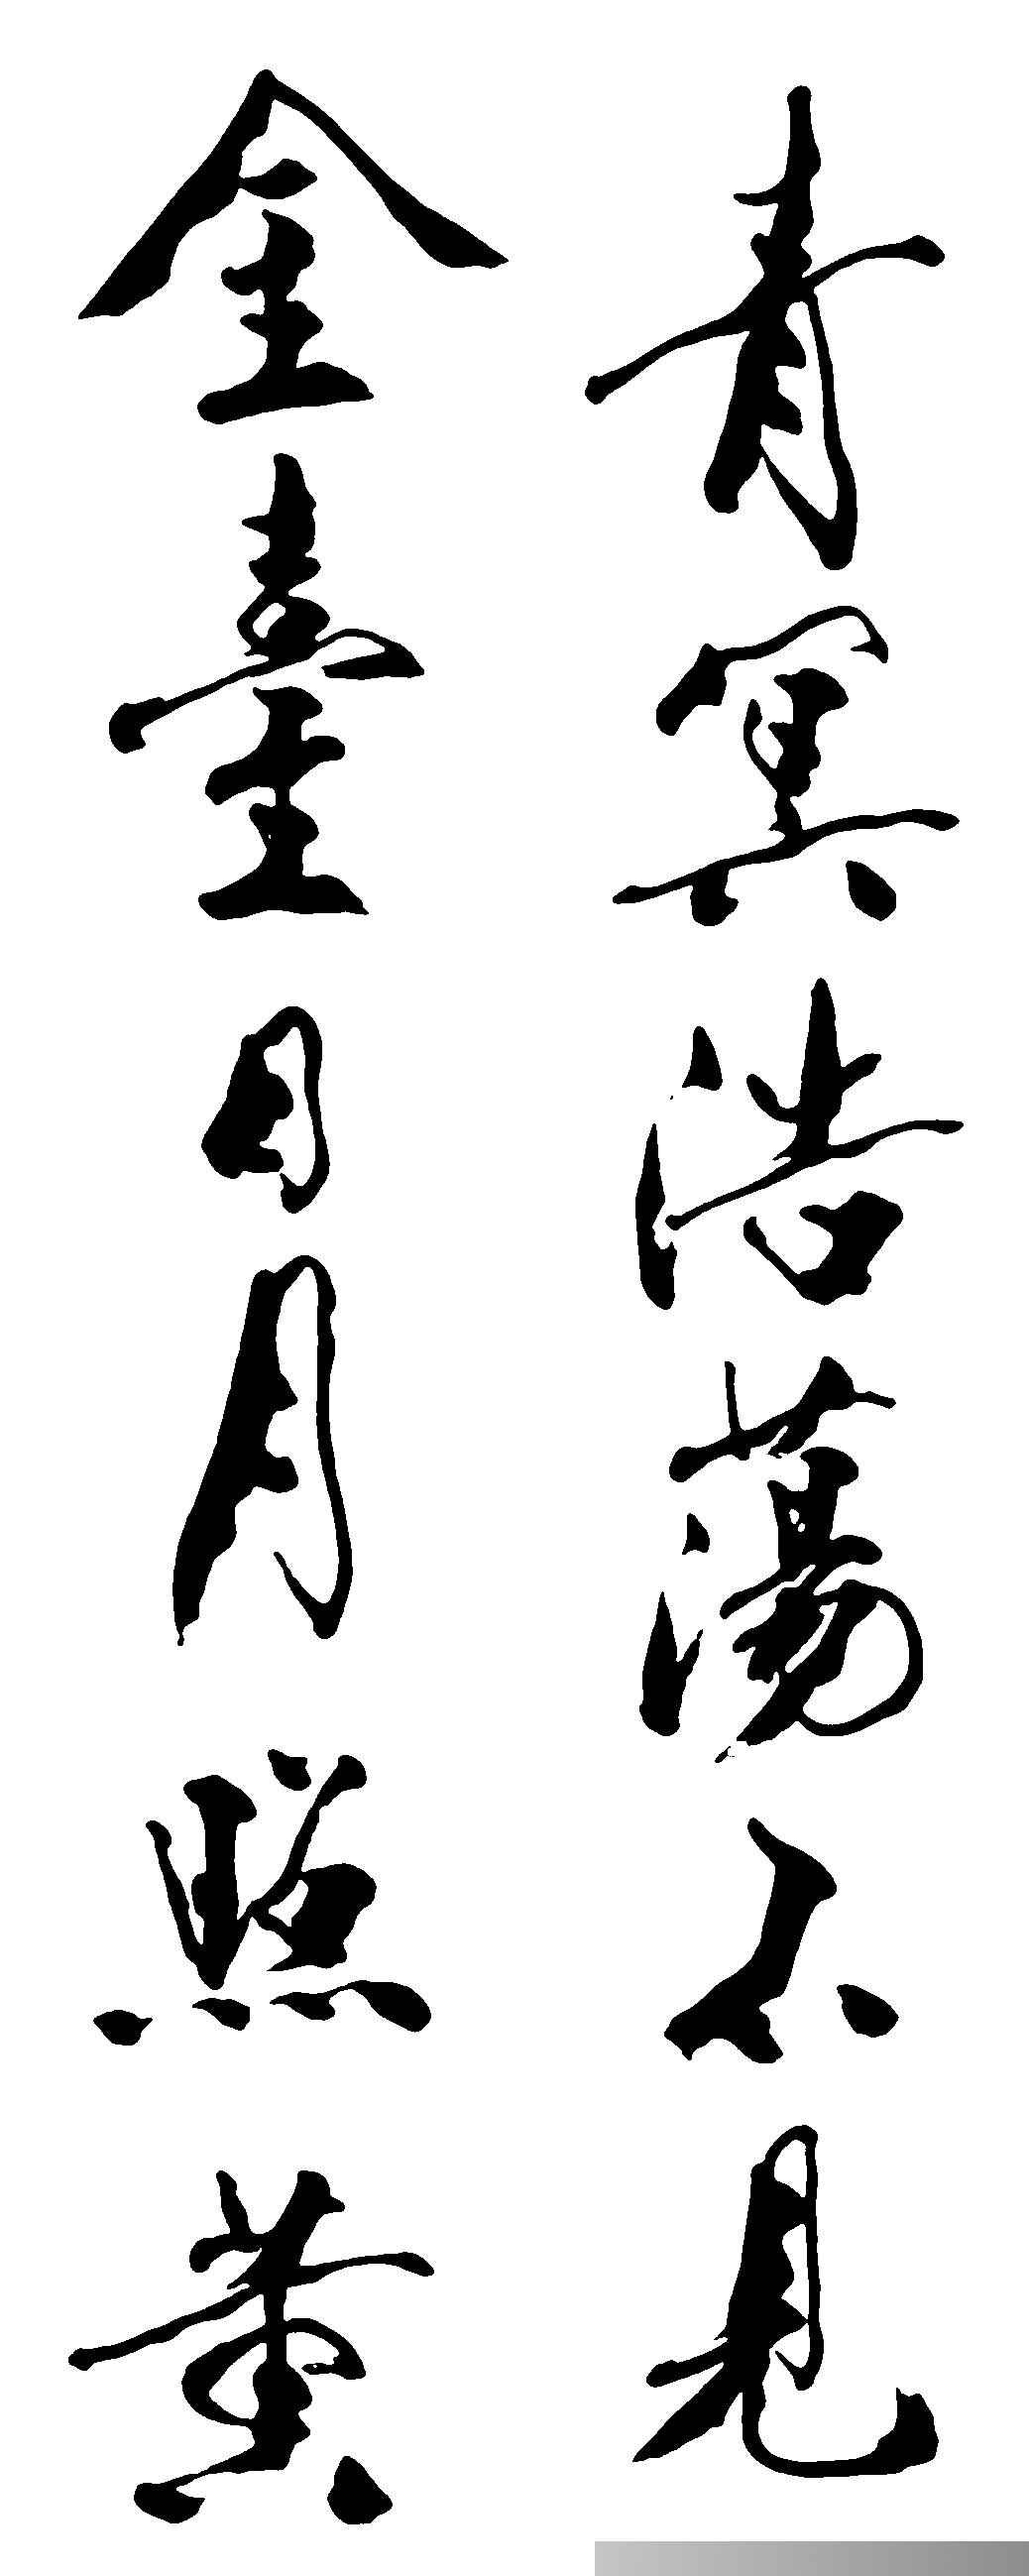 青冥浩蕩不見
金臺日月照黄